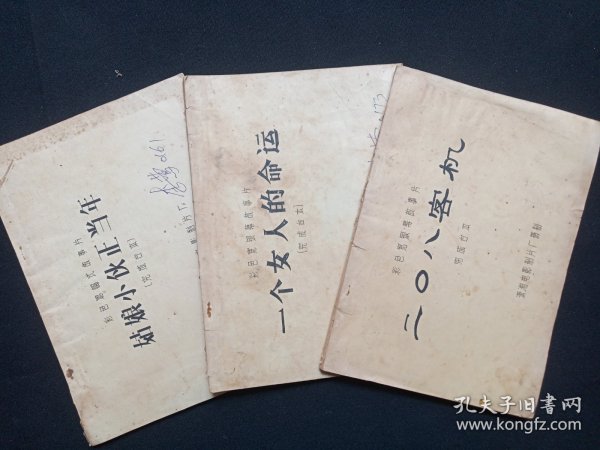 彩色宽银幕故事片
姑娘小伙正当年
(完成台本)
彩色宽银幕故事片
一个女人的命运
(完成台本)
彩色宽银幕故事片
二〇八客机
完成台本
潇湘电影制片厂摄制
孔夫子旧书网
www.kongfz.com